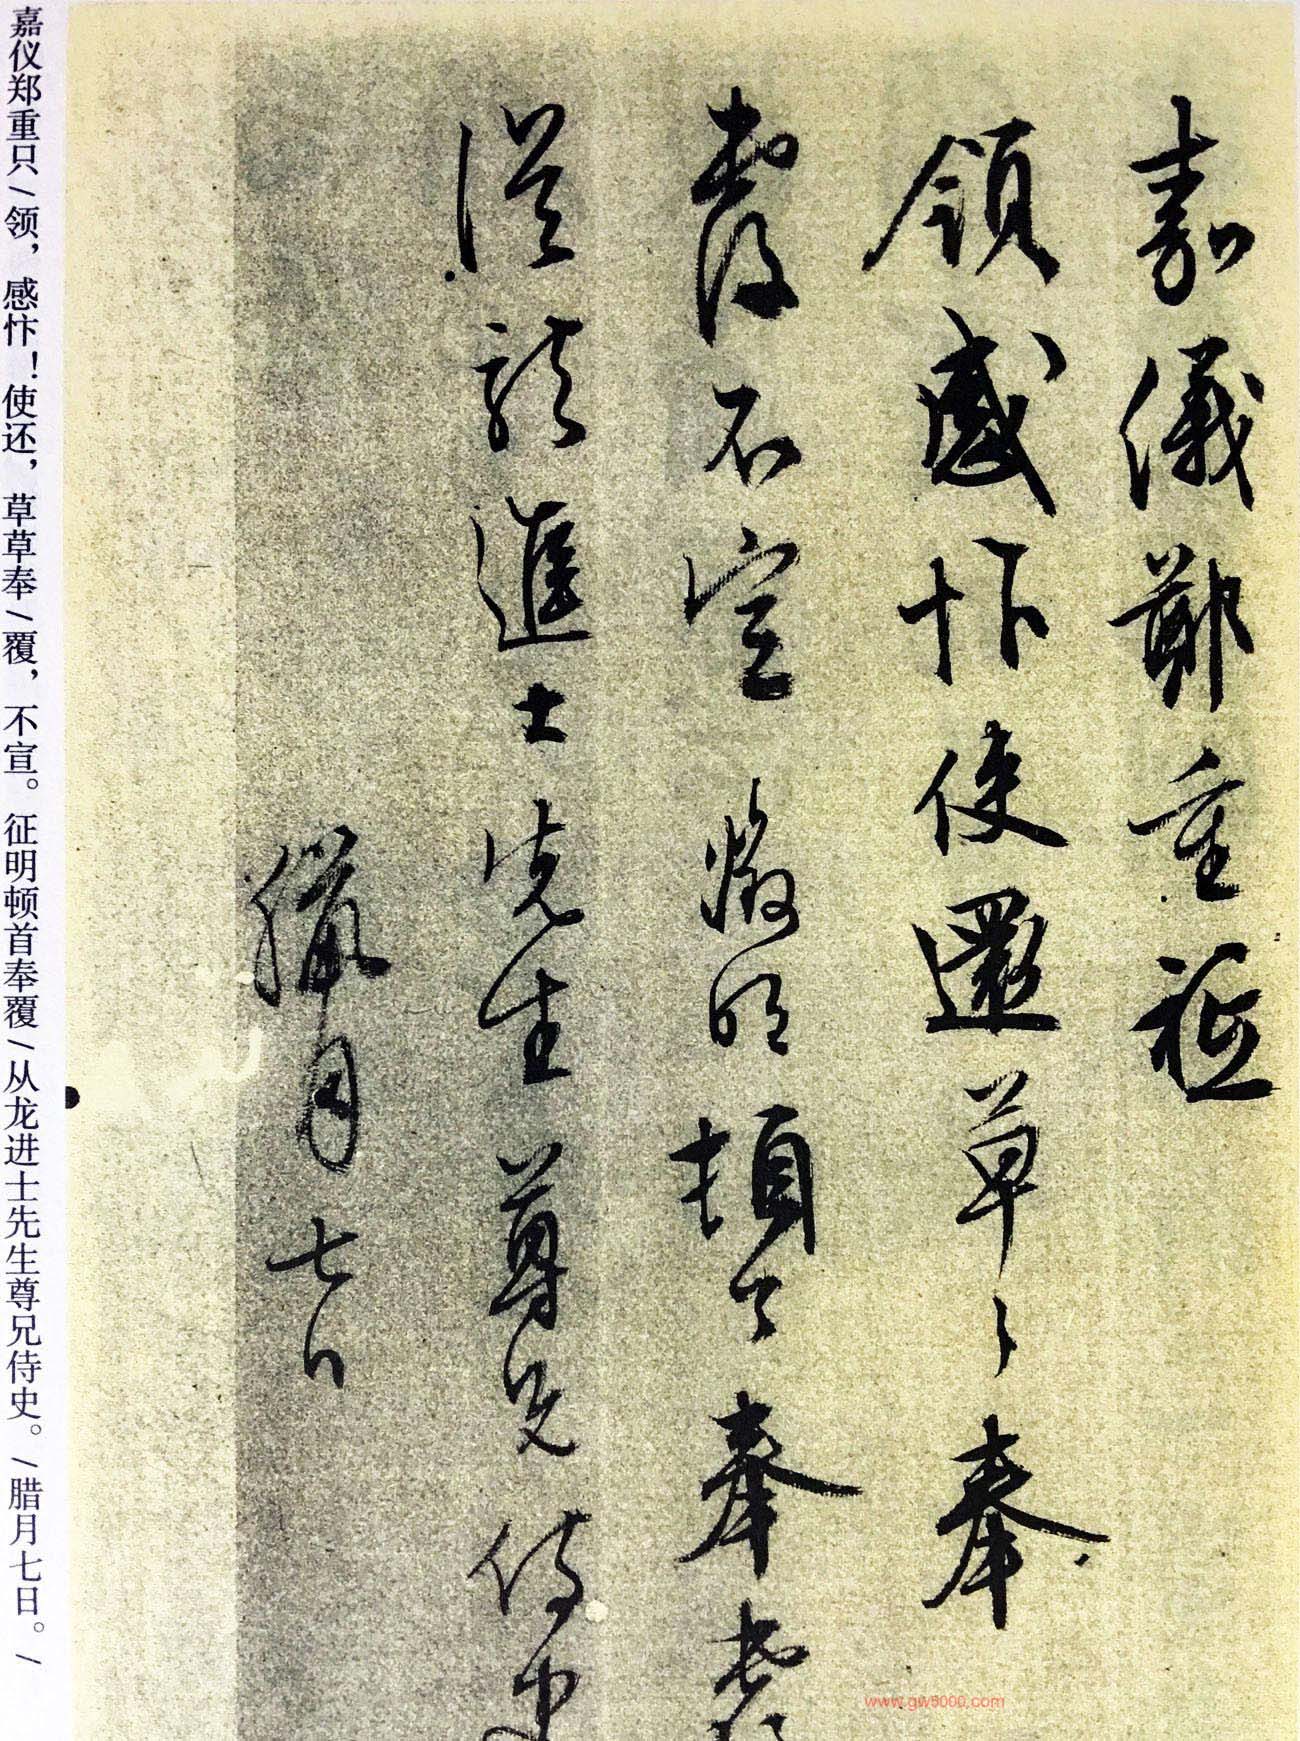 嘉儀鄭重祗
領感忭使還草〻奉
覆不宣 徵明頓首奉覆
從龍進士先生尊兄侍史
臘月七日
嘉仪郑重只/领，感忭！使还，草草奉/覆，不宣。征明顿首奉覆/从龙进士先生尊兄侍史。/腊月七日。/
www.gw5000.com